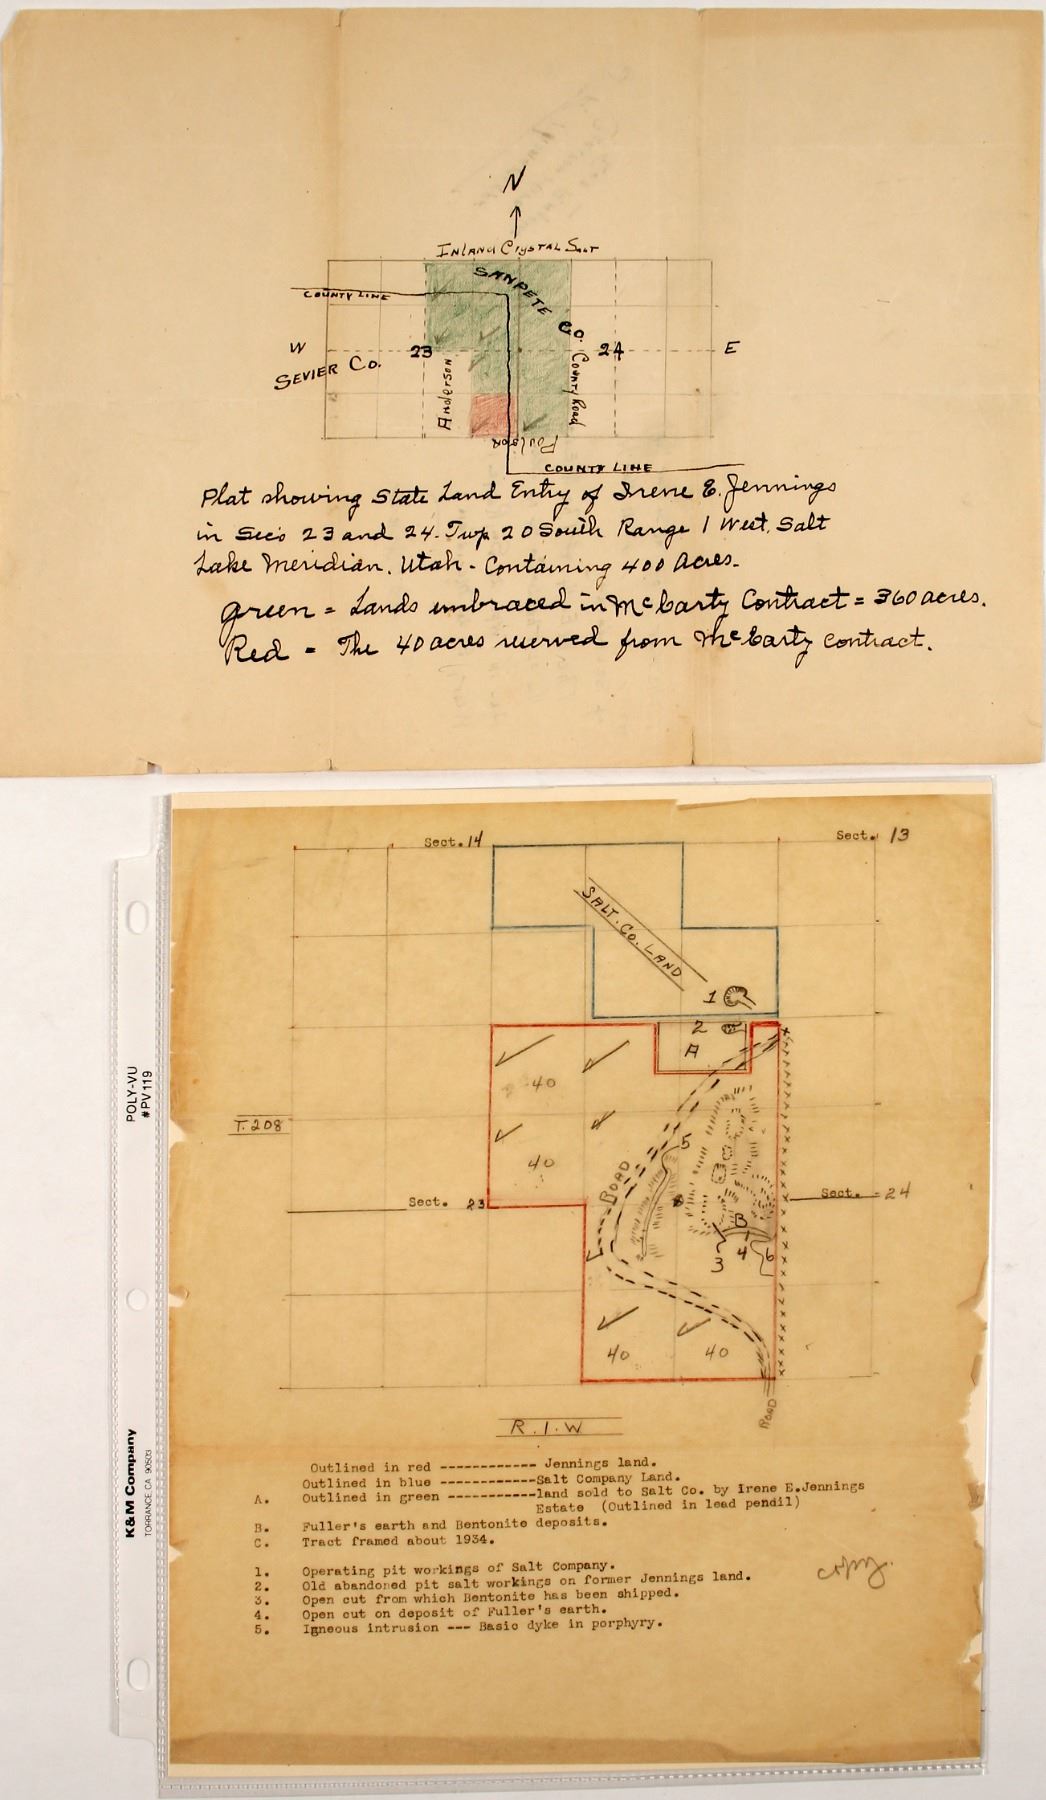 N
Inland Crystal Salt
SANPETE CO.
COUNTY LINE
W
23
24
E
SEVIER CO.
Anderson
County Road
Poulson
COUNTY LINE
Plat showing State Land Entry of Irene E. Jennings
in Sec's 23 and 24. Twp 20 South Range 1 West, Salt
Lake Meridian, Utah - Containing 400 Acres.
Green = Lands embraced in McCarty Contract = 360 acres.
Red = The 40 acres reserved from McCarty contract.
Sect. 14
Sect. 13
SALT. CO. LAND
1
2
A
40
40
T. 20S
5
ROAD
Sect. 23
Sect. - 24
B
3
4
6
40
40
ROAD
R. 1. W
Outlined in red ------------ Jennings land.
Outlined in blue ------------Salt Company Land.
A. Outlined in green -----------land sold to Salt Co. by Irene E.Jennings
Estate (Outlined in lead pendil)
B. Fuller's earth and Bentonite deposits.
C. Tract framed about 1934.
1. Operating pit workings of Salt Company.
2. Old abandoned pit salt workings on former Jennings land.
3. Open cut from which Bentonite has been shipped.
4. Open cut on deposit of Fuller's earth.
5. Igneous intrusion --- Basic dyke in porphyry.
copy.
POLY-VU
#PV119
K&M Company
TORRANCE, CA 90503